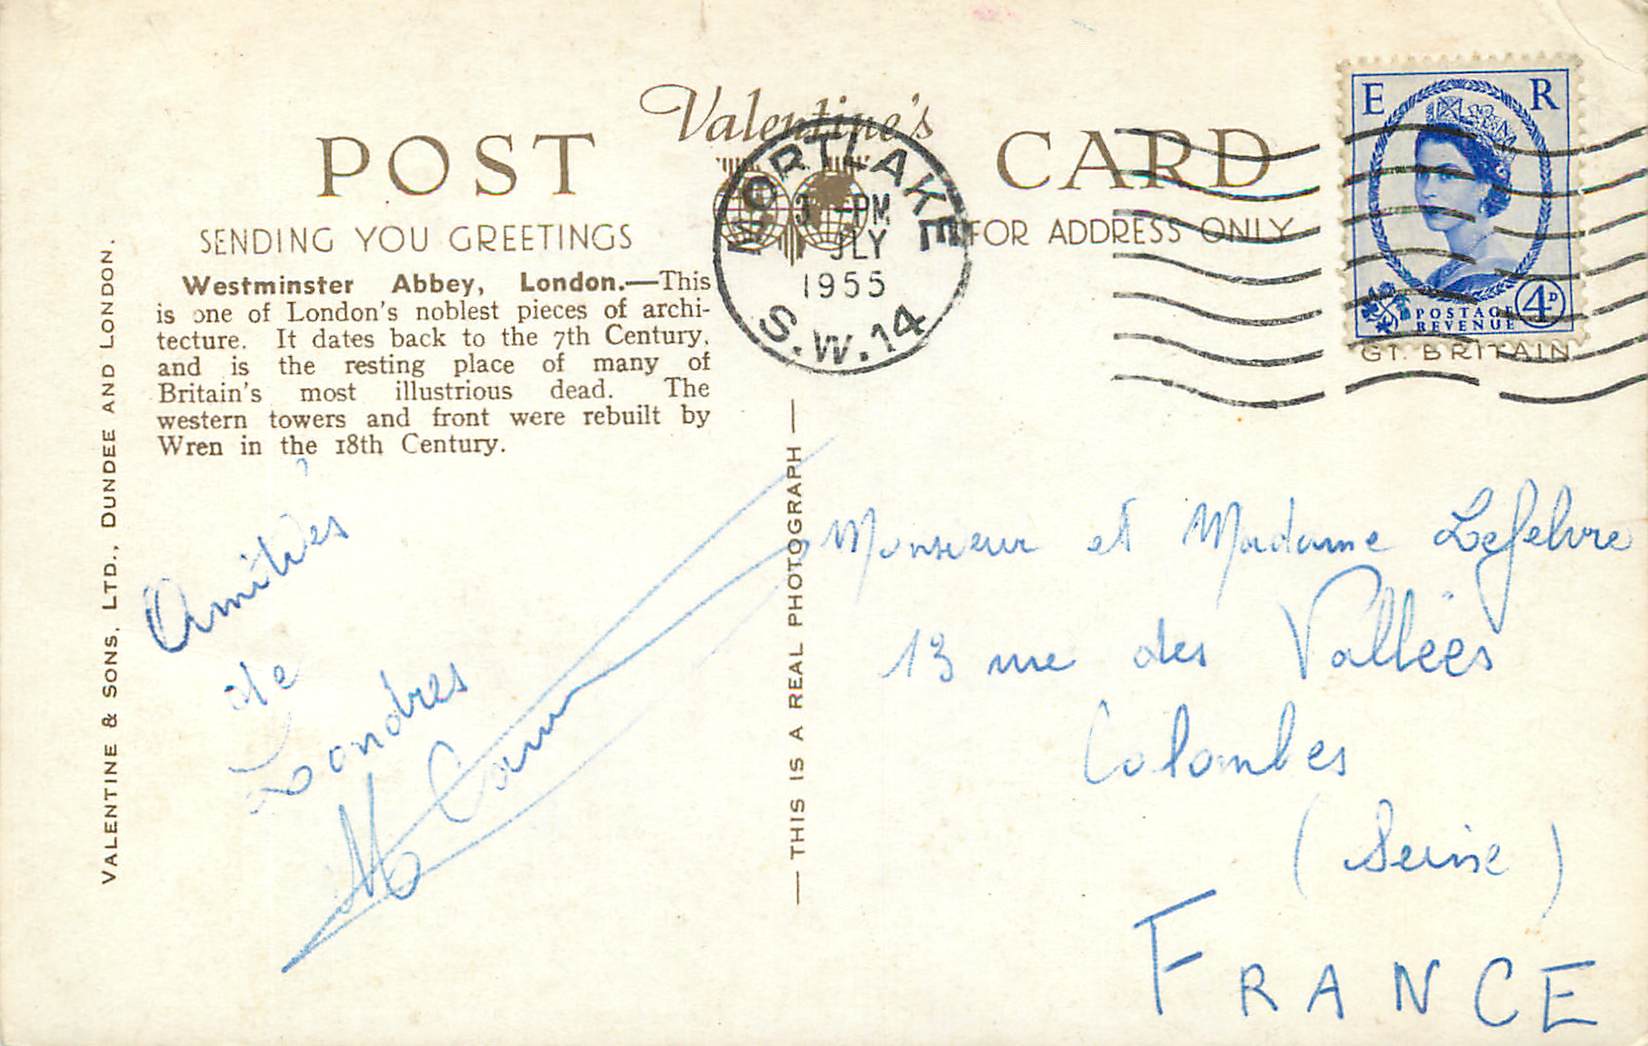 Valentine's
POST CARD
SENDING YOU GREETINGS
FOR ADDRESS ONLY
Westminster Abbey, London.—This
is one of London's noblest pieces of archi-
tecture. It dates back to the 7th Century,
and is the resting place of many of
Britain's most illustrious dead. The
western towers and front were rebuilt by
Wren in the 18th Century.
VALENTINE & SONS, LTD., DUNDEE AND LONDON.
— THIS IS A REAL PHOTOGRAPH —
MORTLAKE
PM
JLY
1955
S.W.14
E R
POSTAGE
REVENUE
4D
GT. BRITAIN
Amitiés
de
Londres
Monsieur et Madame Lefebvre
13 rue des Vallées
Colombes
(Seine)
FRANCE